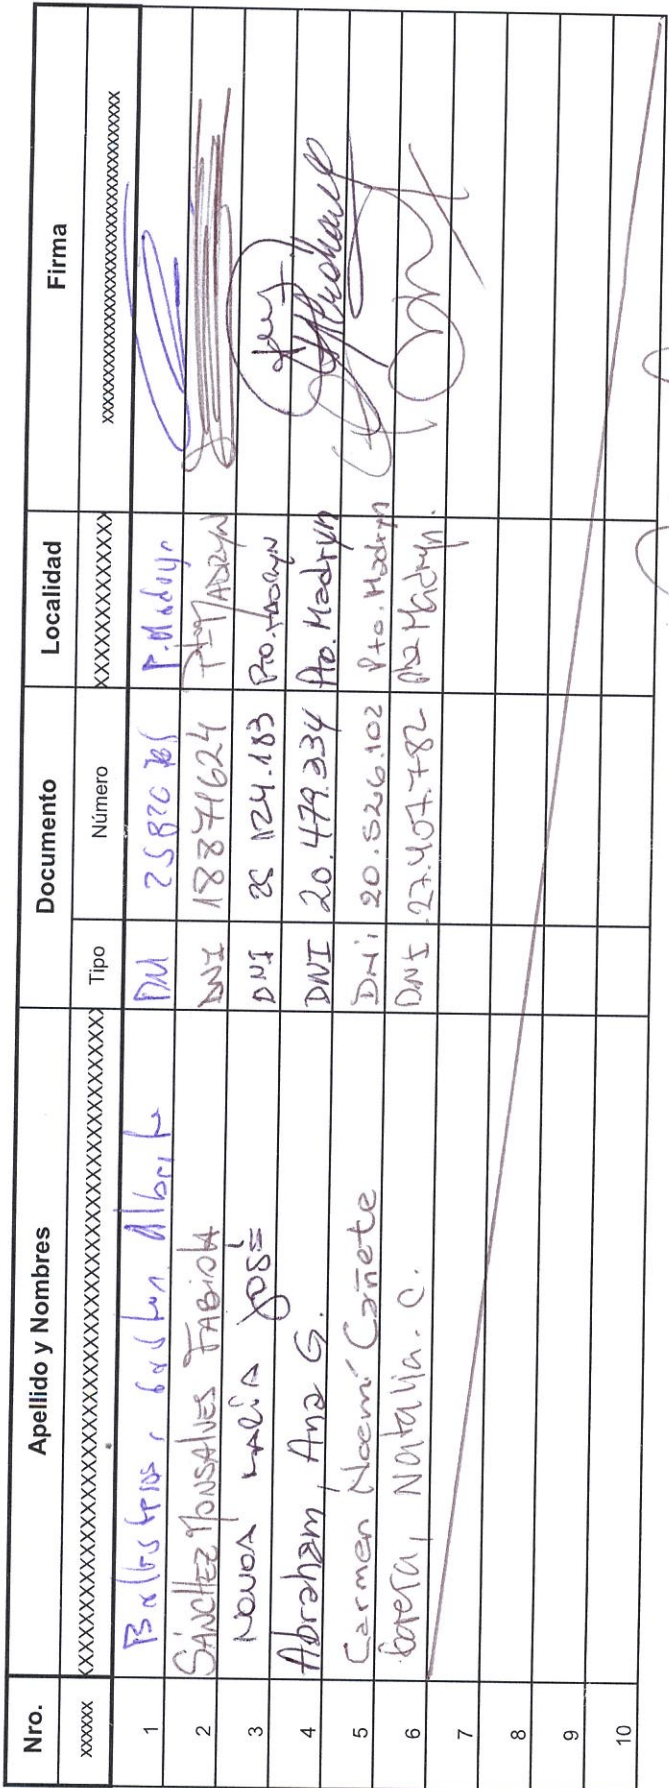 Nro. Apellido y Nombres Documento Localidad Firma
xxxxxx xxxxxxxxxxxxxxxxxxxxxxxxxxxxxxxxxxxxxxxxxxxxxxxxxxx Tipo Número xxxxxxxxxxxxx xxxxxxxxxxxxxxxxxxxxxxxxxxxxxxxxxxxxx
1 Alberto DNI P. Madryn
2 SÁNCHEZ MONSALVES FABIOLA DNI 18871624 MADRYN
3 NOVOA MARÍA JOSÉ DNI 124.183 Pto. MADRYN
4 Abraham, Ana G. DNI 20.479.334 Pto. Madryn
5 Carmen Noemí Cañete DNI 20.526.102 Pto. Madryn
6 Natalia. C. DNI 27.407.782 Pto Madryn.
7
8
9
10